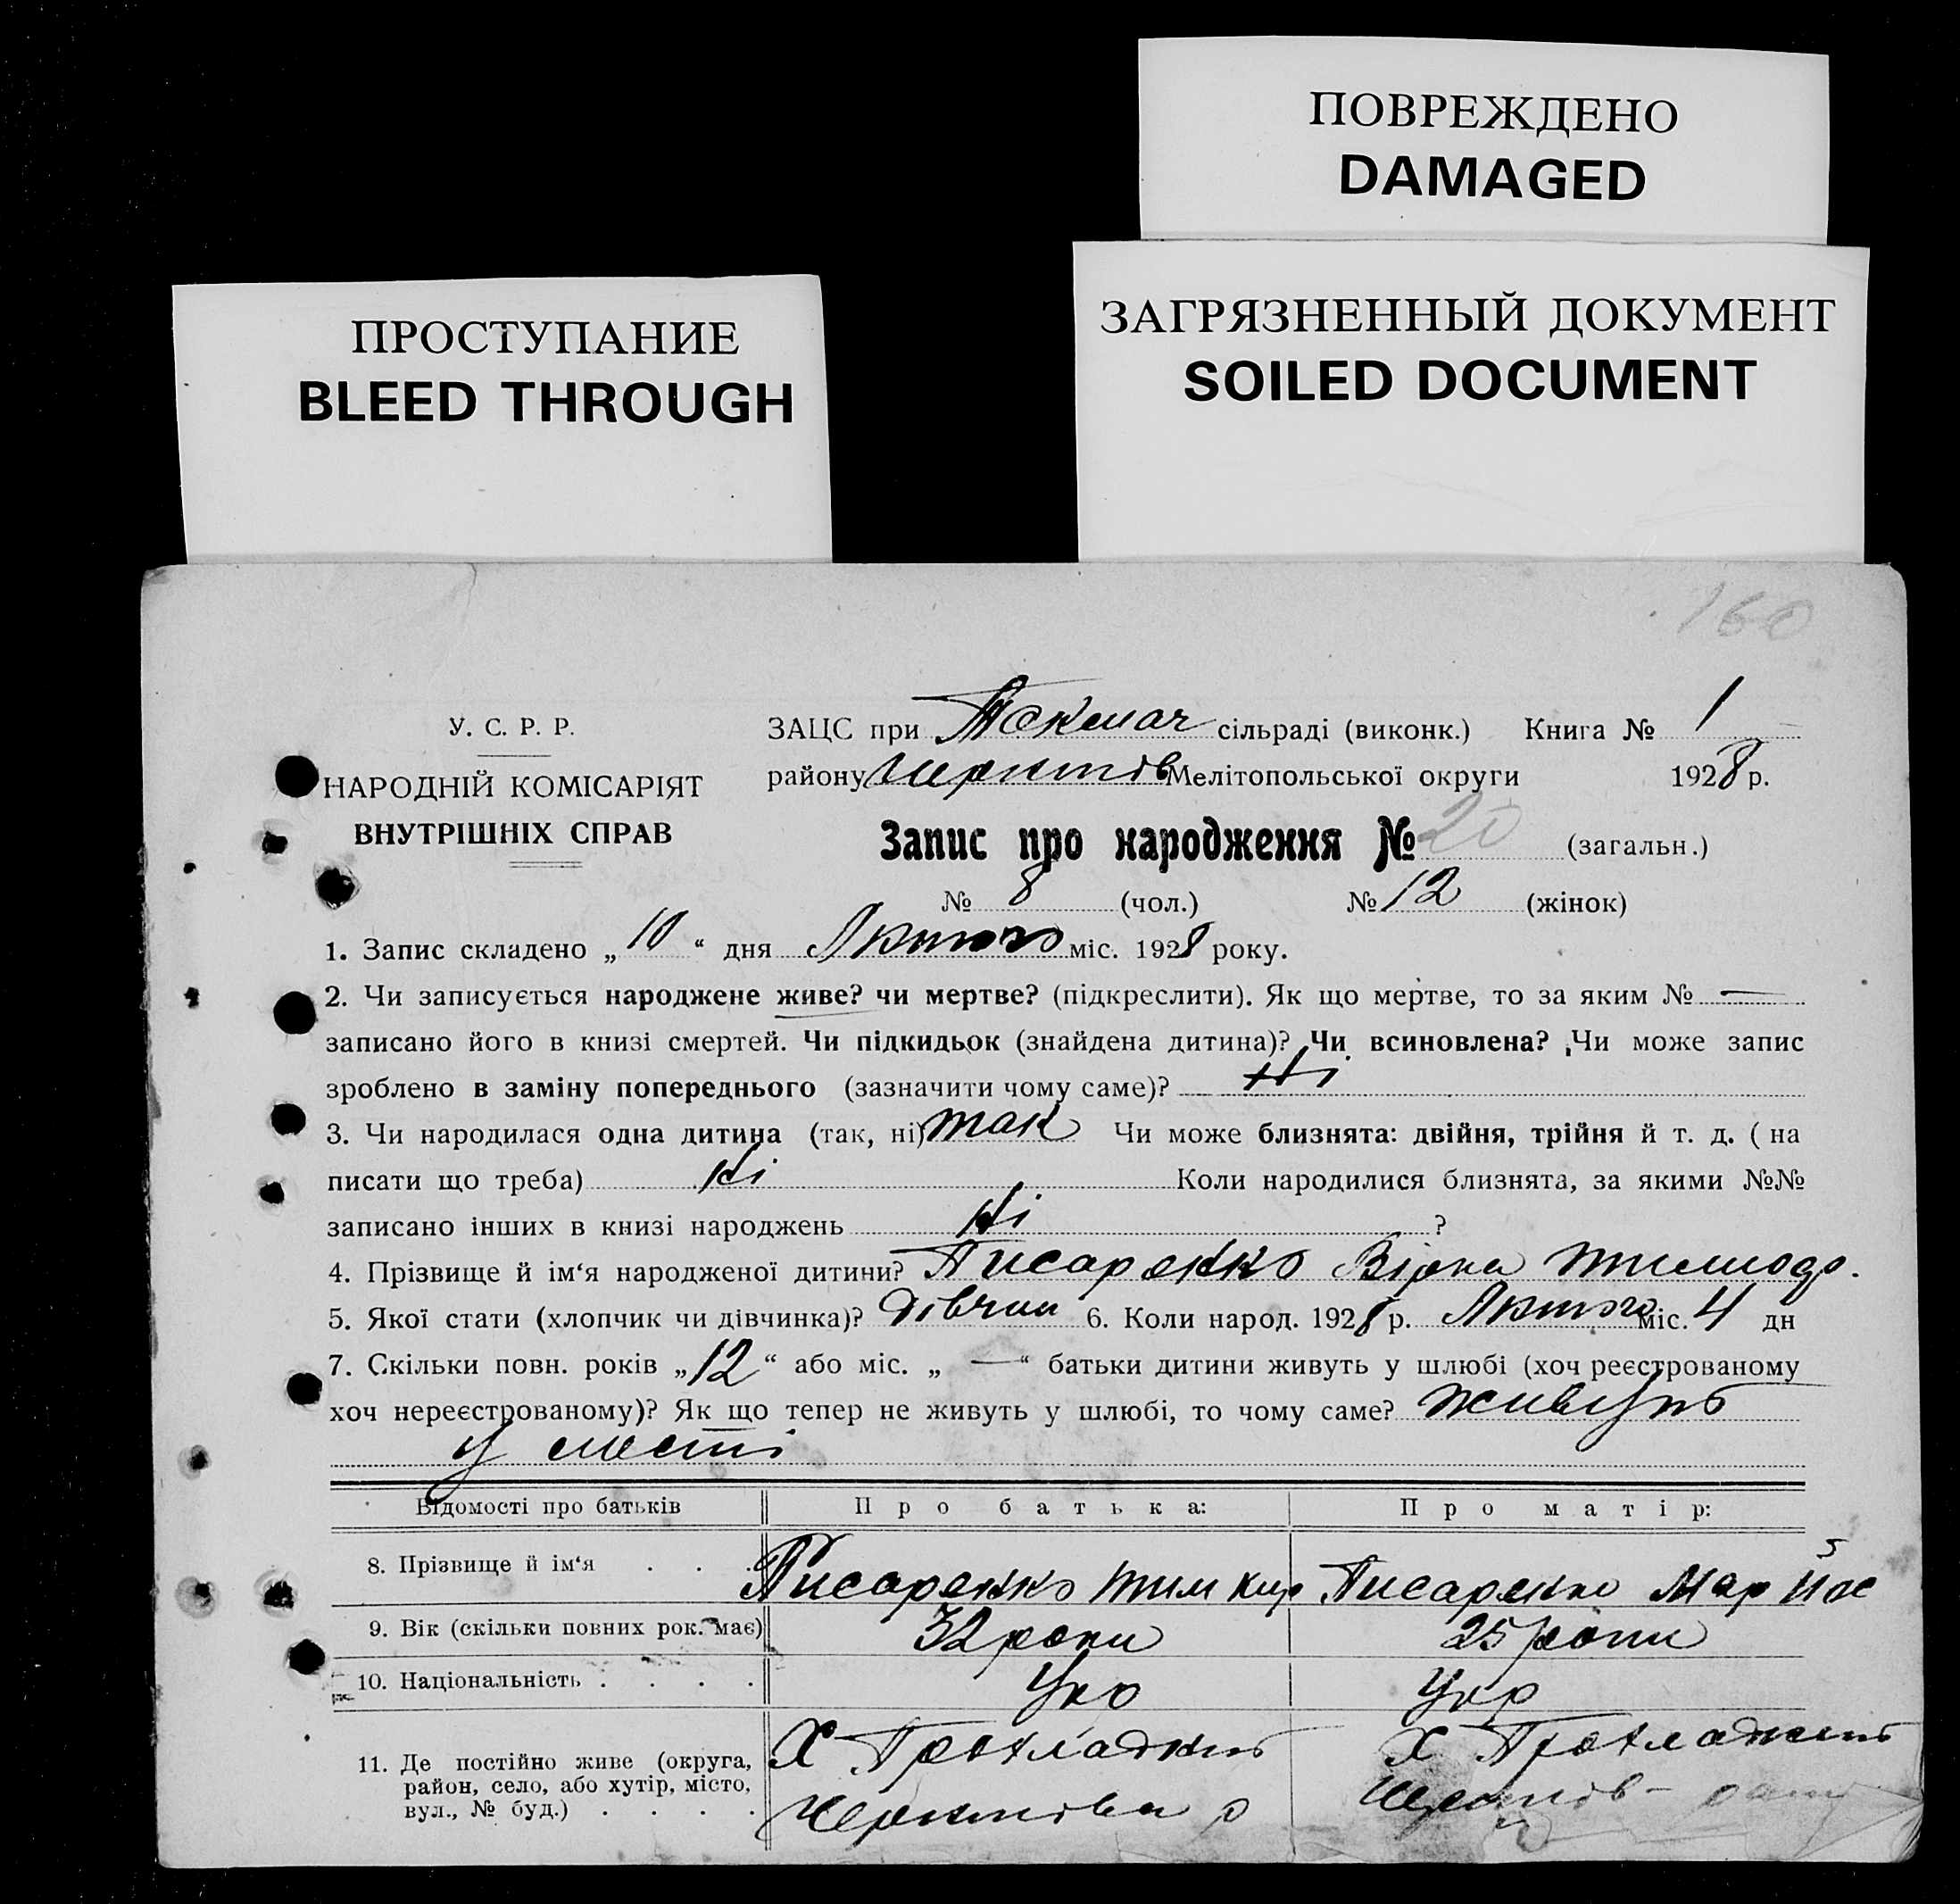 ПОВРЕЖДЕНО
DAMAGED
ПРОСТУПАНИЕ
BLEED THROUGH
ЗАГРЯЗНЕННЫЙ ДОКУМЕНТ
SOILED DOCUMENT
160
У. С. Р. Р.
НАРОДНІЙ КОМІСАРІЯТ
ВНУТРІШНІХ СПРАВ
ЗАЦС при Токмач сільраді (виконк.) Книга № 1
району Мелітопольської округи 1928 р.
Запис про народження № 20 (загальн.)
№ 8 (чол.) № 12 (жінок)
1. Запис складено „10“ дня Лютого міс. 1928 року.
2. Чи записується народжене живе? чи мертве? (підкреслити). Як що мертве, то за яким № —
записано його в книзі смертей. Чи підкидьок (знайдена дитина)? Чи всиновлена? Чи може запис
зроблено в заміну попереднього (зазначити чому саме)? Ні
3. Чи народилася одна дитина (так, ні) так Чи може близнята: двійня, трійня й т. д. ( на
писати що треба) Ні Коли народилися близнята, за якими №№
записано інших в книзі народжень Ні ?
4. Прізвище й ім‘я народженої дитини? Писаренко Вірка
5. Якої стати (хлопчик чи дівчинка)? Дівчин 6. Коли народ. 1928 р. Лютого міс. 4 дн
7. Скільки повн. років „12“ або міс. „—“ батьки дитини живуть у шлюбі (хоч реєстрованому
хоч нереєстрованому)? Як що тепер не живуть у шлюбі, то чому саме? живуть
у месті
Відомості про батьків Про батька: Про матір:
8. Прізвище й ім‘я . . . Писаренко Тим Кир Писаренко Мар Йос
9. Вік (скільки повних рок. має) 32 роки 25 роки
10. Національність . . . . Укр Укр
11. Де постійно живе (округа,
район, село, або хутір, місто,
вул., № буд.) . . . .
Х
Х